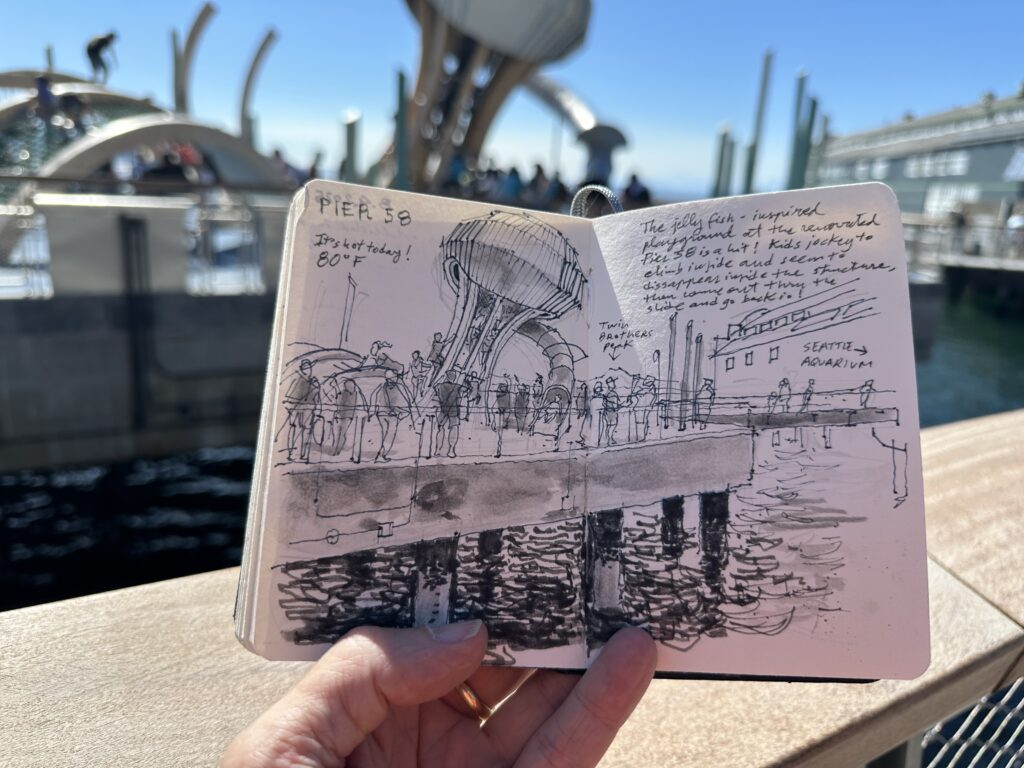 PIER 58
It's hot today!
80°F
The jelly fish-inspired
playground at the renovated
Pier 58 is a hit! Kids jockey to
climb inside and seem to
dissappear inside the structure,
then come out thru the
slide and go back in!
Twin
Brothers
Peak
SEATTLE →
AQUARIUM